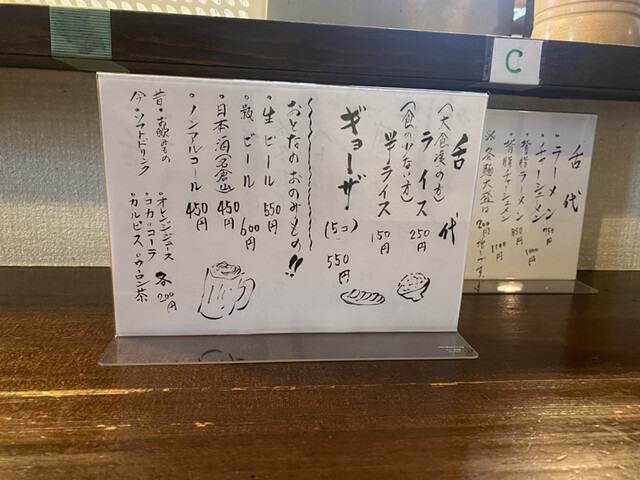 舌代
(大食漢の方)
ライス 250円
(食の少ない方)
半ライス 150円
ギョーザ (5コ) 550円
おとなのおのみもの!!
・生ビール 550円
・瓶ビール 600円
・日本酒 450円
・ノンアルコール 450円
昔・お飲みもの
今・ソフトドリンク
・オレンジジュース
・コカ・コーラ
・カルピス ・ウーロン茶
各200円
C
舌代
・ラーメン 750円
・チャーシューメン
・背脂ラーメン 850円
・背脂チャーシューメン 1100円
※各麺大盛は200円増です